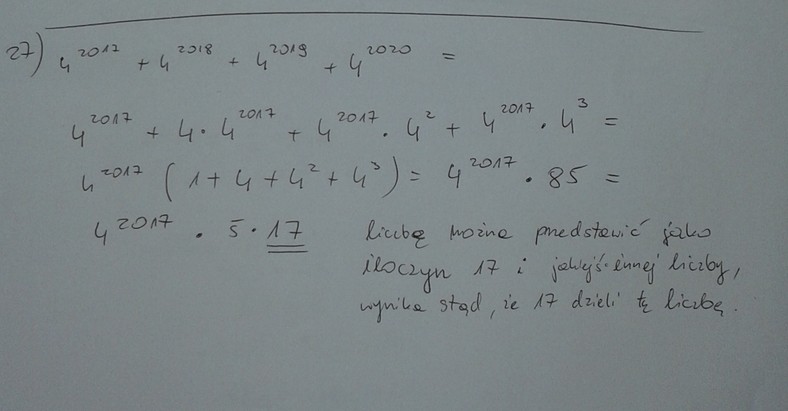 27) 4^2017 + 4^2018 + 4^2019 + 4^2020 =
4^2017 + 4 · 4^2017 + 4^2017 · 4^2 + 4^2017 · 4^3 =
4^2017 (1 + 4 + 4^2 + 4^3) = 4^2017 · 85 =
4^2017 · 5 · 17 liczbę można przedstawić jako
iloczyn 17 i jakiejś innej liczby,
wynika stąd, że 17 dzieli tę liczbę.